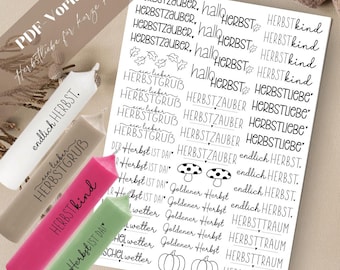 PDF Vorl
Herbstliebe für kerze
HERBSTZAUBER
HERBSTZAUBER
HERBSTZAUBER
HERBSTZAUBER
hallo HERBST
hallo HERBST
hallo HERBST
HERBSTkind
HERBSTkind
HERBSTkind
HERBSTkind
HERBSTLIEBE
HERBSTLIEBE
HERBSTLIEBE
HERBSTLIEBE
HERBSTZAUBER
HERBSTZAUBER
HERBSTZAUBER
HERBSTZAUBER
HERBSTGRUß
HERBSTGRUß
HERBSTGRUß
endlich HERBST.
endlich HERBST.
endlich HERBST.
DER Herbst IST DA!
Herbst IST DA!
Herbst IST DA!
Goldener Herbst
Goldener Herbst
Goldener Herbst
Goldener Herbst
HERBSTTRAUM
HERBSTTRAUM
HERBSTTRAUM
wetter
wetter
wetter
endlich HERBST.
ein lieber
HERBSTGRUß
HERBSTkind
DER Herbst IST DA!